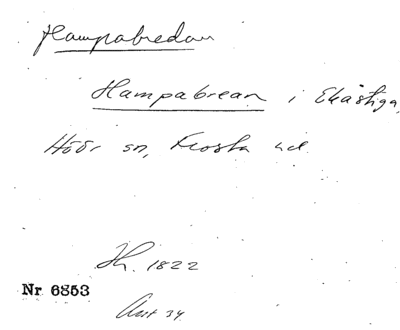 Hampabredan
Hampabrean i Ekastiga,
Höör sn, Frosta hd.
Hh. 1822
Nr 6853
Avst 34.